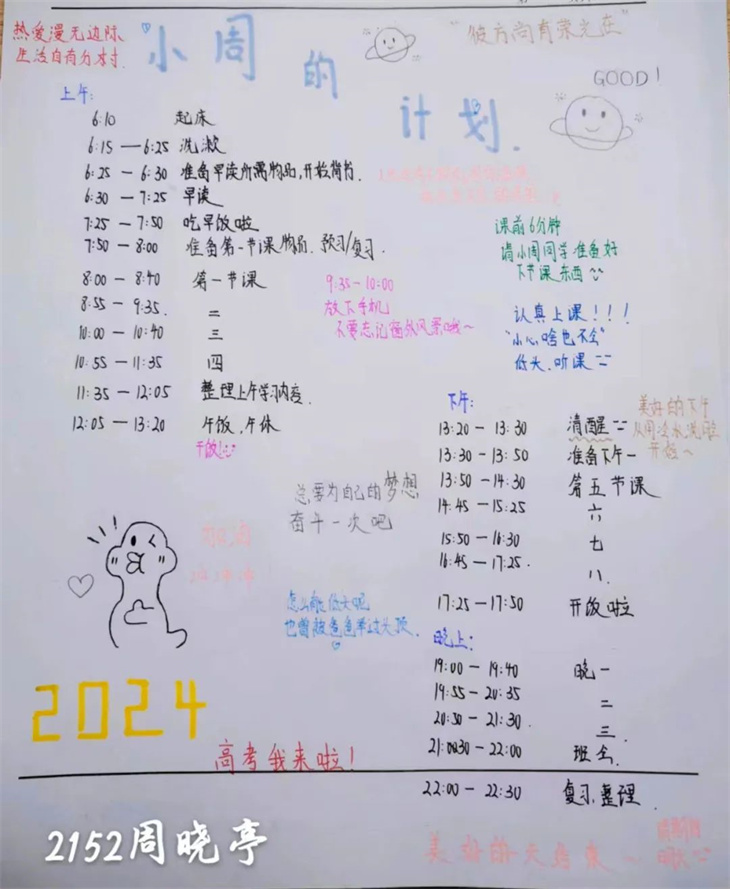 热爱漫无边际
生活自有分寸
"小周的计划.
"彼方尚有荣光在"
GOOD!
上午:
6:10 起床
6:15 — 6:25 洗漱
6:25 — 6:30 准备早读所需物品,开始背书.
6:30 — 7:25 早读
7:25 — 7:50 吃早饭啦
7:50 — 8:00 准备第一节课物品. 预习/复习.
8:00 — 8:40 第一节课
8:55 — 9:35. 二
10:00 — 10:40 三
10:55 — 11:35 四
11:35 — 12:05 整理上午学习内容.
12:05 — 13:20 午饭.午休
开饭!
课前6分钟
请小周同学准备好
下节课东西
9:35-10:00
放下手机
不要忘记窗外风景哦~
认真上课!!!
"小心啥也不会"
低头.听课
下午:
13:20 — 13:30 清醒
13:30 — 13:50 准备下午一
13:50 — 14:30 第五节课
14:45 — 15:25 六
15:50 — 16:30 七
16:45 — 17:25. 八.
17:25 — 17:50 开饭啦
美好的下午
从用冷水洗脸
开始~
总要为自己的梦想
奋斗一次吧
加油
怎么能低头呢
也曾被爸爸举过头顶.
晚上:
19:00 — 19:40 晚一
19:55 — 20:35 二
20:50 — 21:30. 三.
21:30 — 22:00 班会.
22:00 — 22:30 复习.整理.
2024
高考我来啦!
2152周晓亭